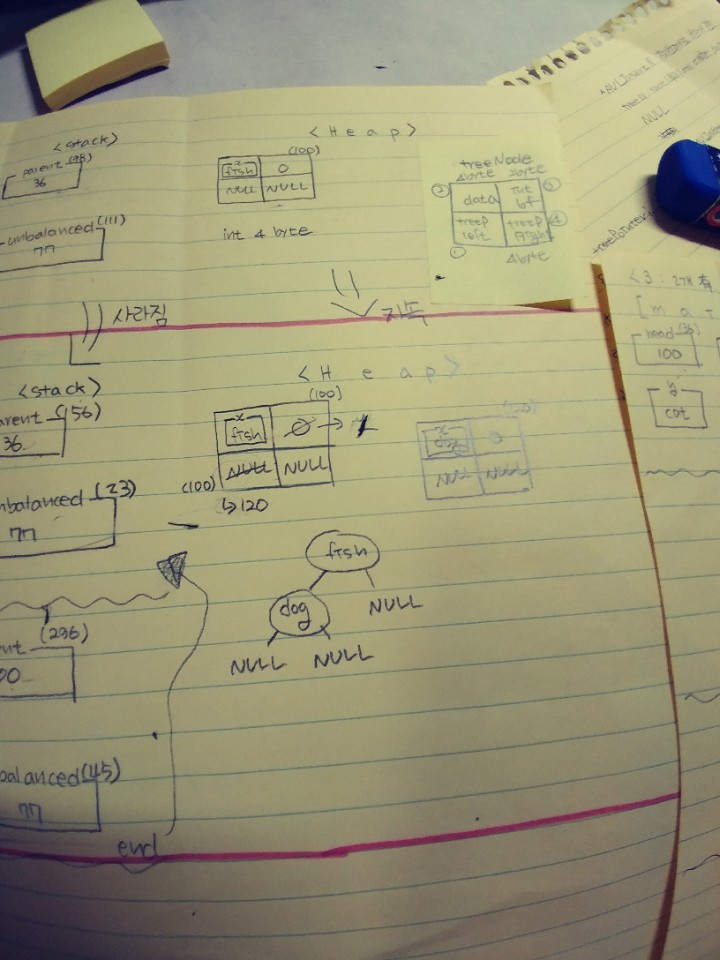 <stack>
parent (98)
36
unbalanced (111)
77
<Heap>
(100)
x
fish 0
NULL NULL
int 4 byte
treeNode
4byte 2byte
② data int bf ③
treeP left treeP right ④
① 4byte
NULL
treePointer
사라짐
<stack>
arent (156)
36
nbalanced (23)
77
<Heap>
(100)
x
fish 0 → 1
(100) NULL NULL
↳120
(120)
x
dog 0
NULL NULL
fish
dog NULL
NULL NULL
ent (296)
00
balanced (45)
77
end
<3: 2개
[mai
head (36)
100
y
cat